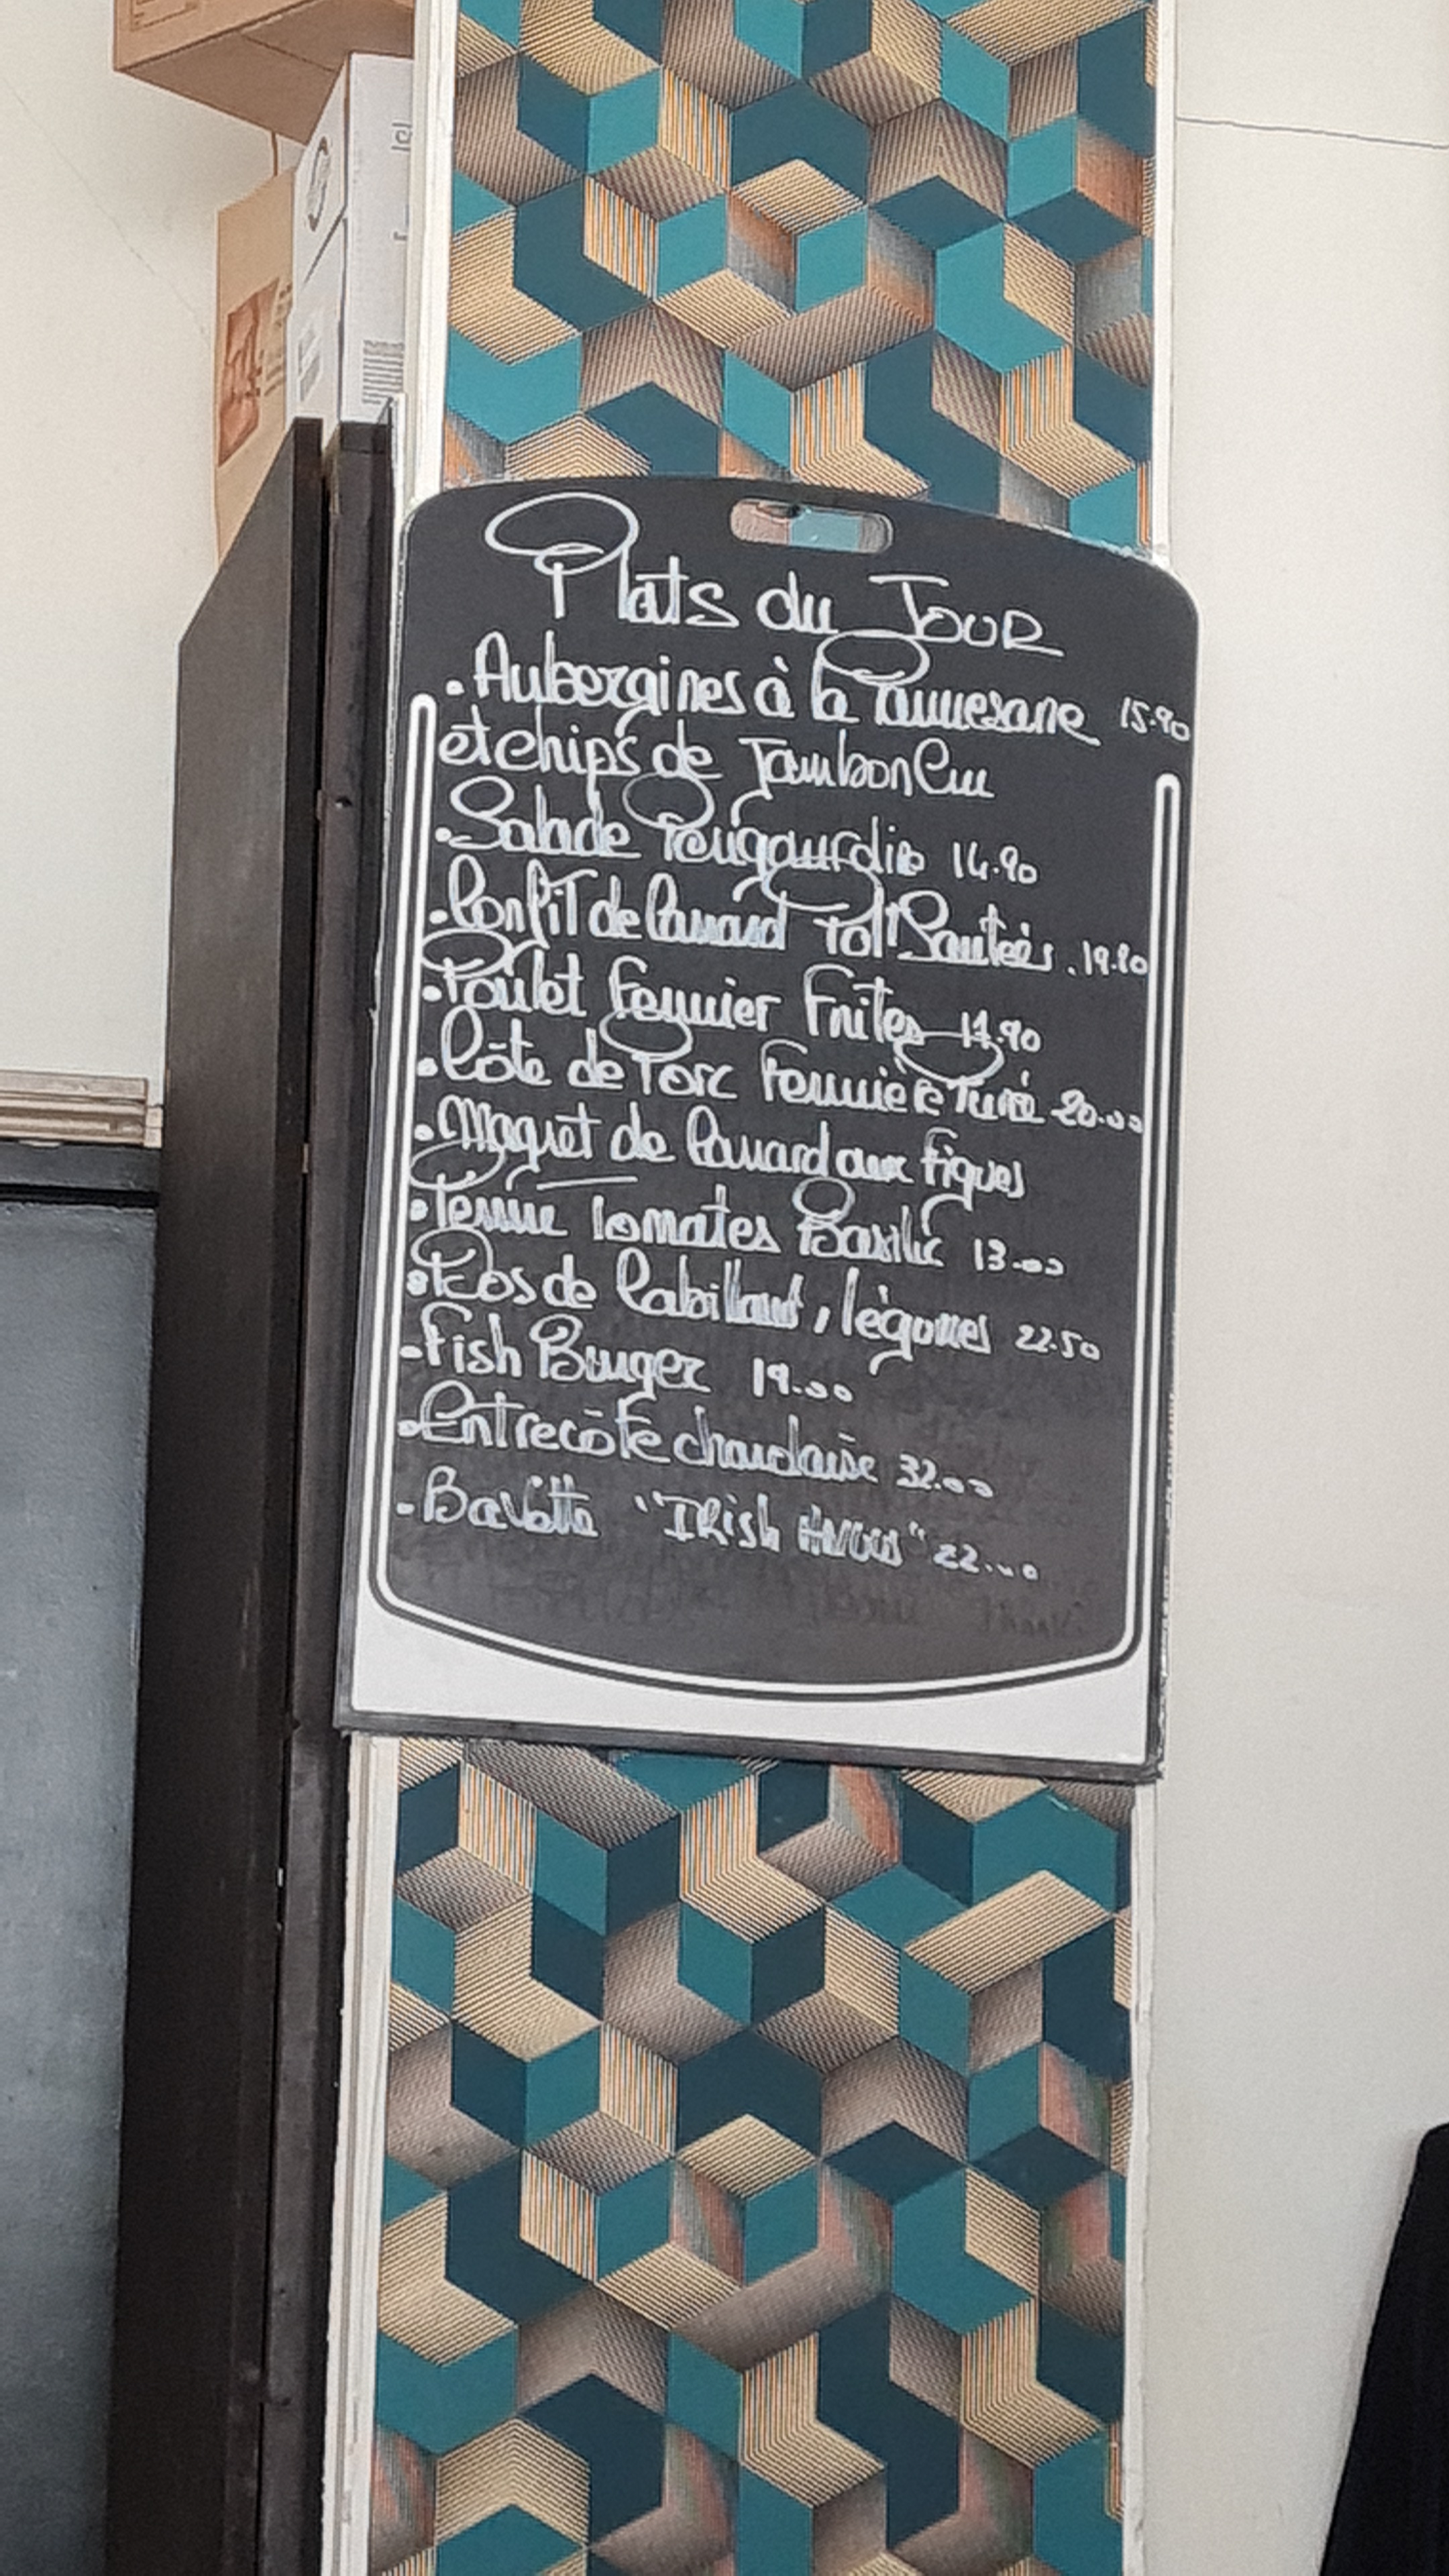 Plats du Jour
. Aubergines à la Parmesane 15.90
et chips de Jambon Cru
. Salade Périgourdine 14.90
. Confit de Canard Pdt Sautées . 19.80
. Poulet Fermier Frites
. Côte de Porc Fermière Purée 20.00
. Magret de Canard aux figues
. Penne Tomates Basilic 13.00
. Dos de Cabillaud, légumes 22.50
- Fish Burger 19.00
. Entrecôte charolaise 32.00
- Bavette "Irish" 22.00